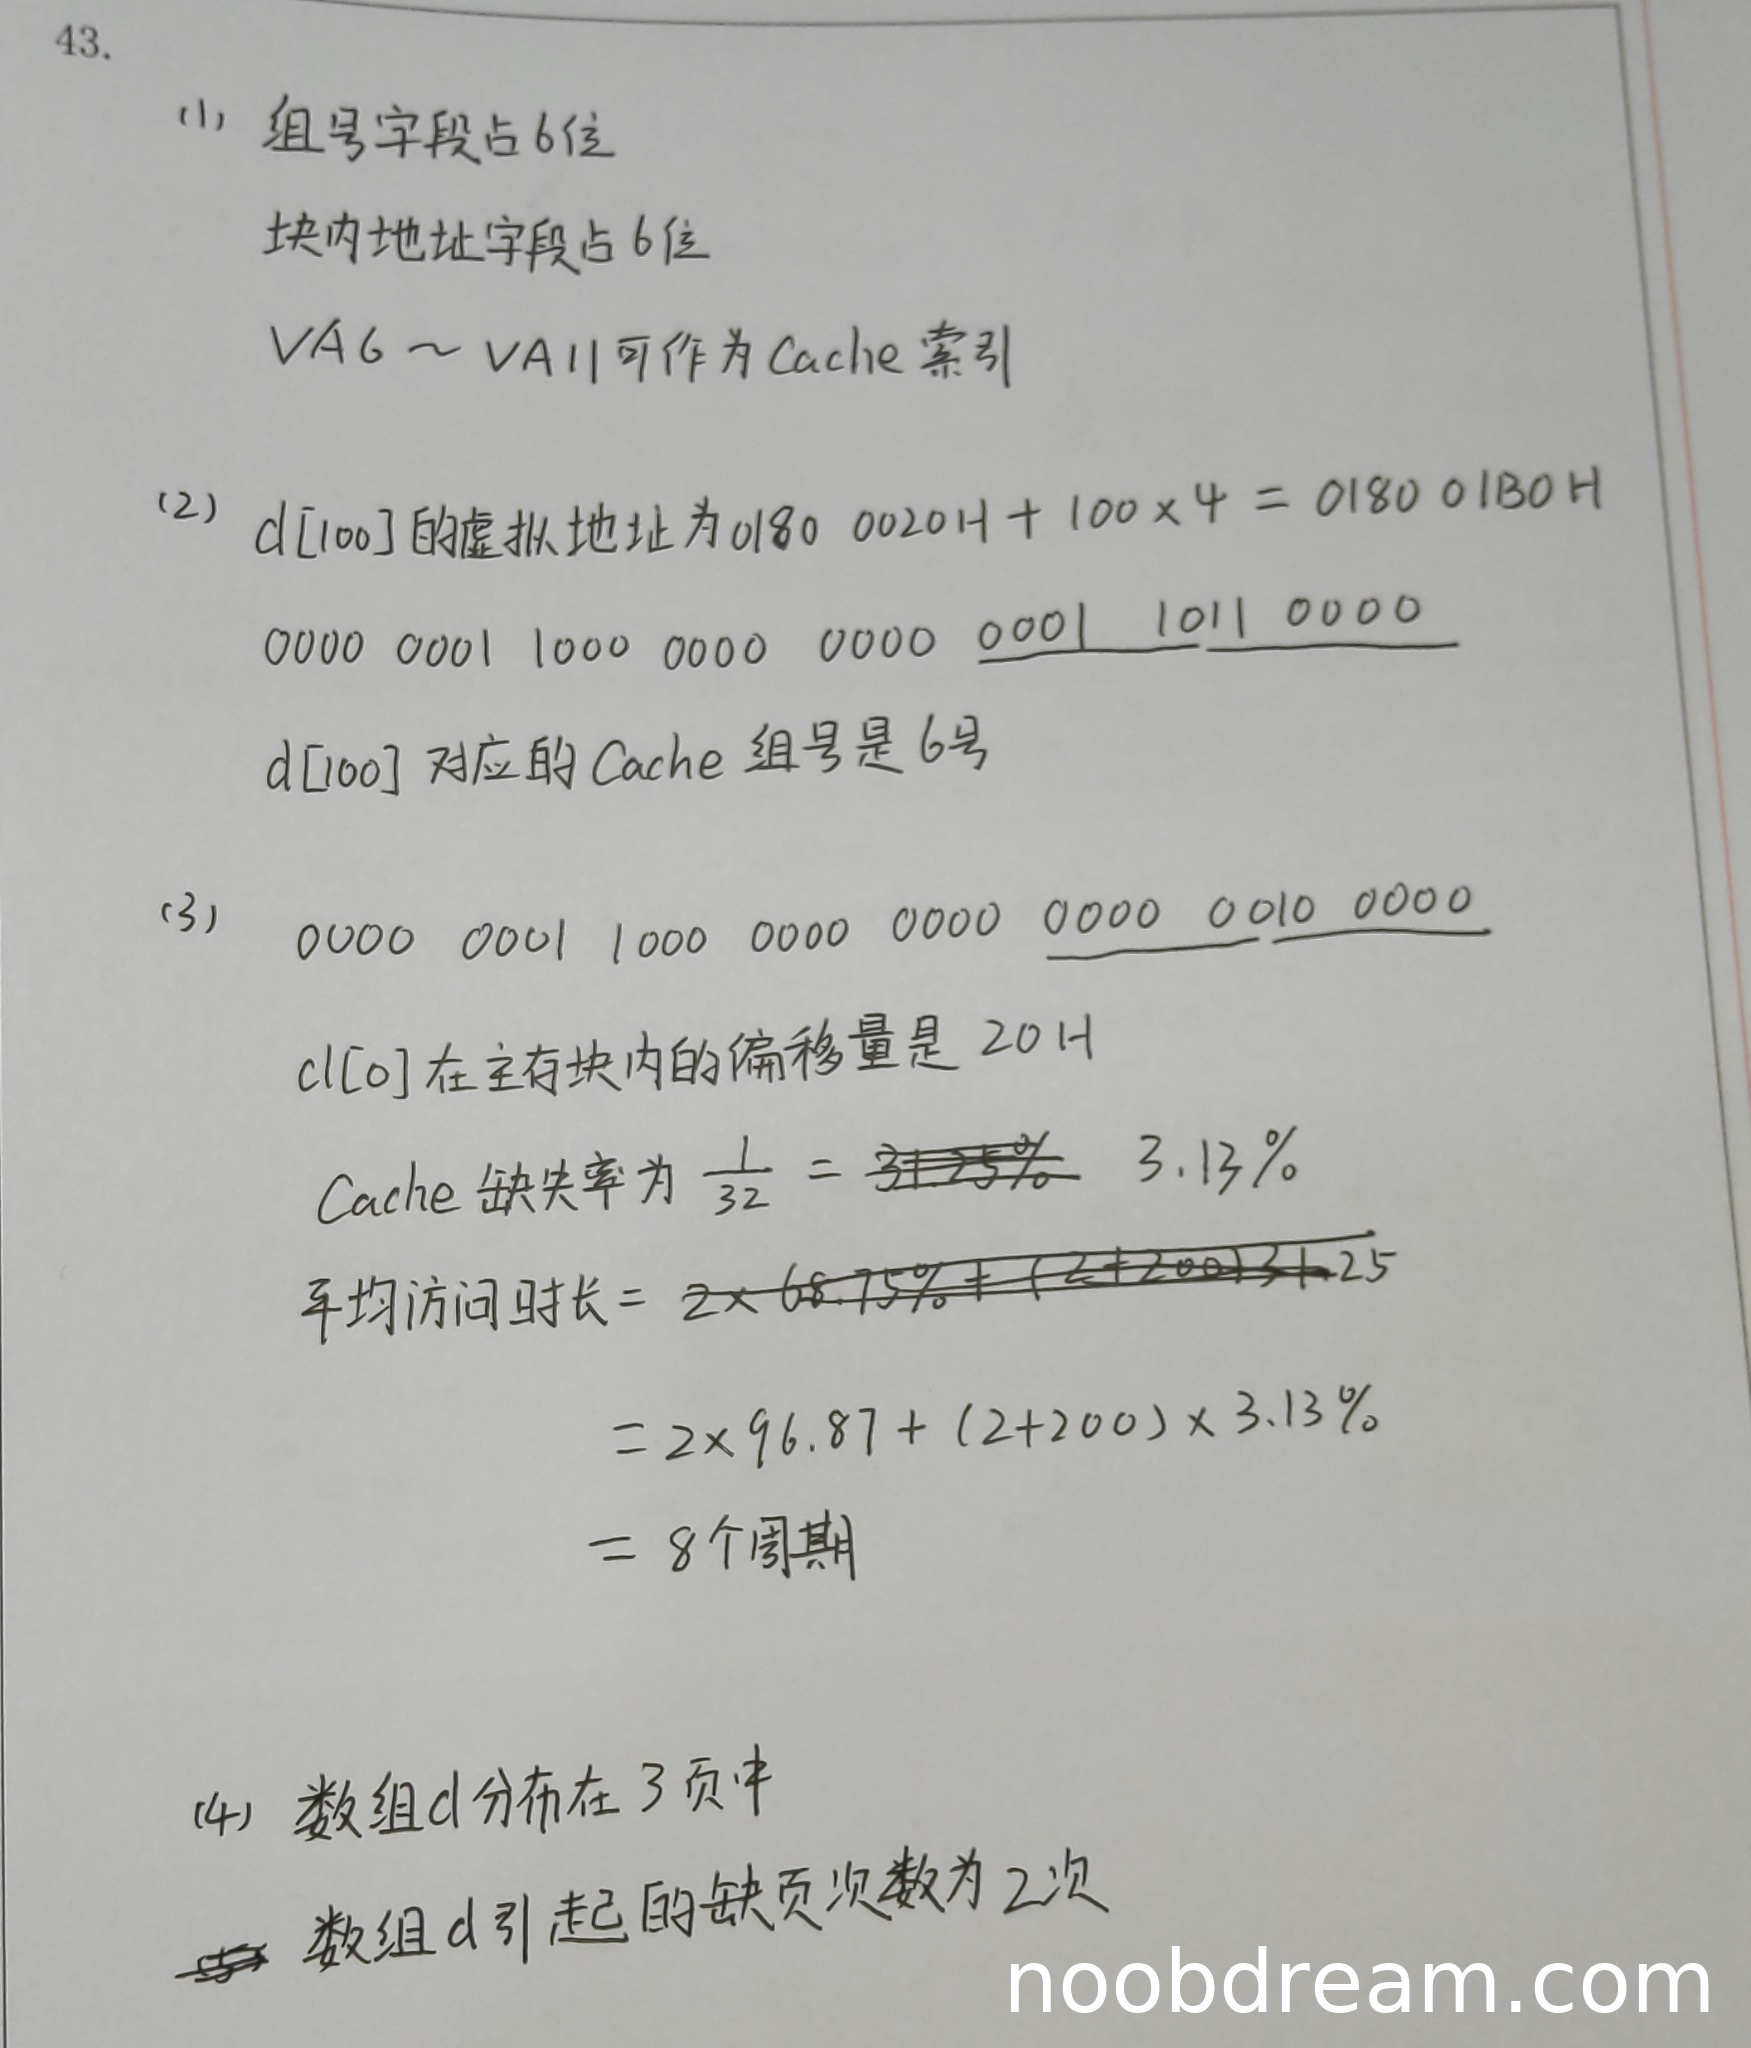 43.
(1) 组号字段占6位
块内地址字段占6位
VA6 ~ VA11可作为Cache索引
(2) d[100]的虚拟地址为0180 0020H + 100 × 4 = 0180 01B0H
0000 0001 1000 0000 0000 0001 1011 0000
d[100] 对应的Cache组号是6号
(3) 0000 0001 1000 0000 0000 0000 0010 0000
d[0]在主存块内的偏移量是 20H
Cache缺失率为 1/32 = 31.25% 3.13%
平均访问时长 = 2× 68.75% + (2+200)31.25
= 2×96.87 + (2+200) × 3.13%
= 8个周期
(4) 数组d分布在3页中
数组d引起的缺页次数为2次
noobdream.com